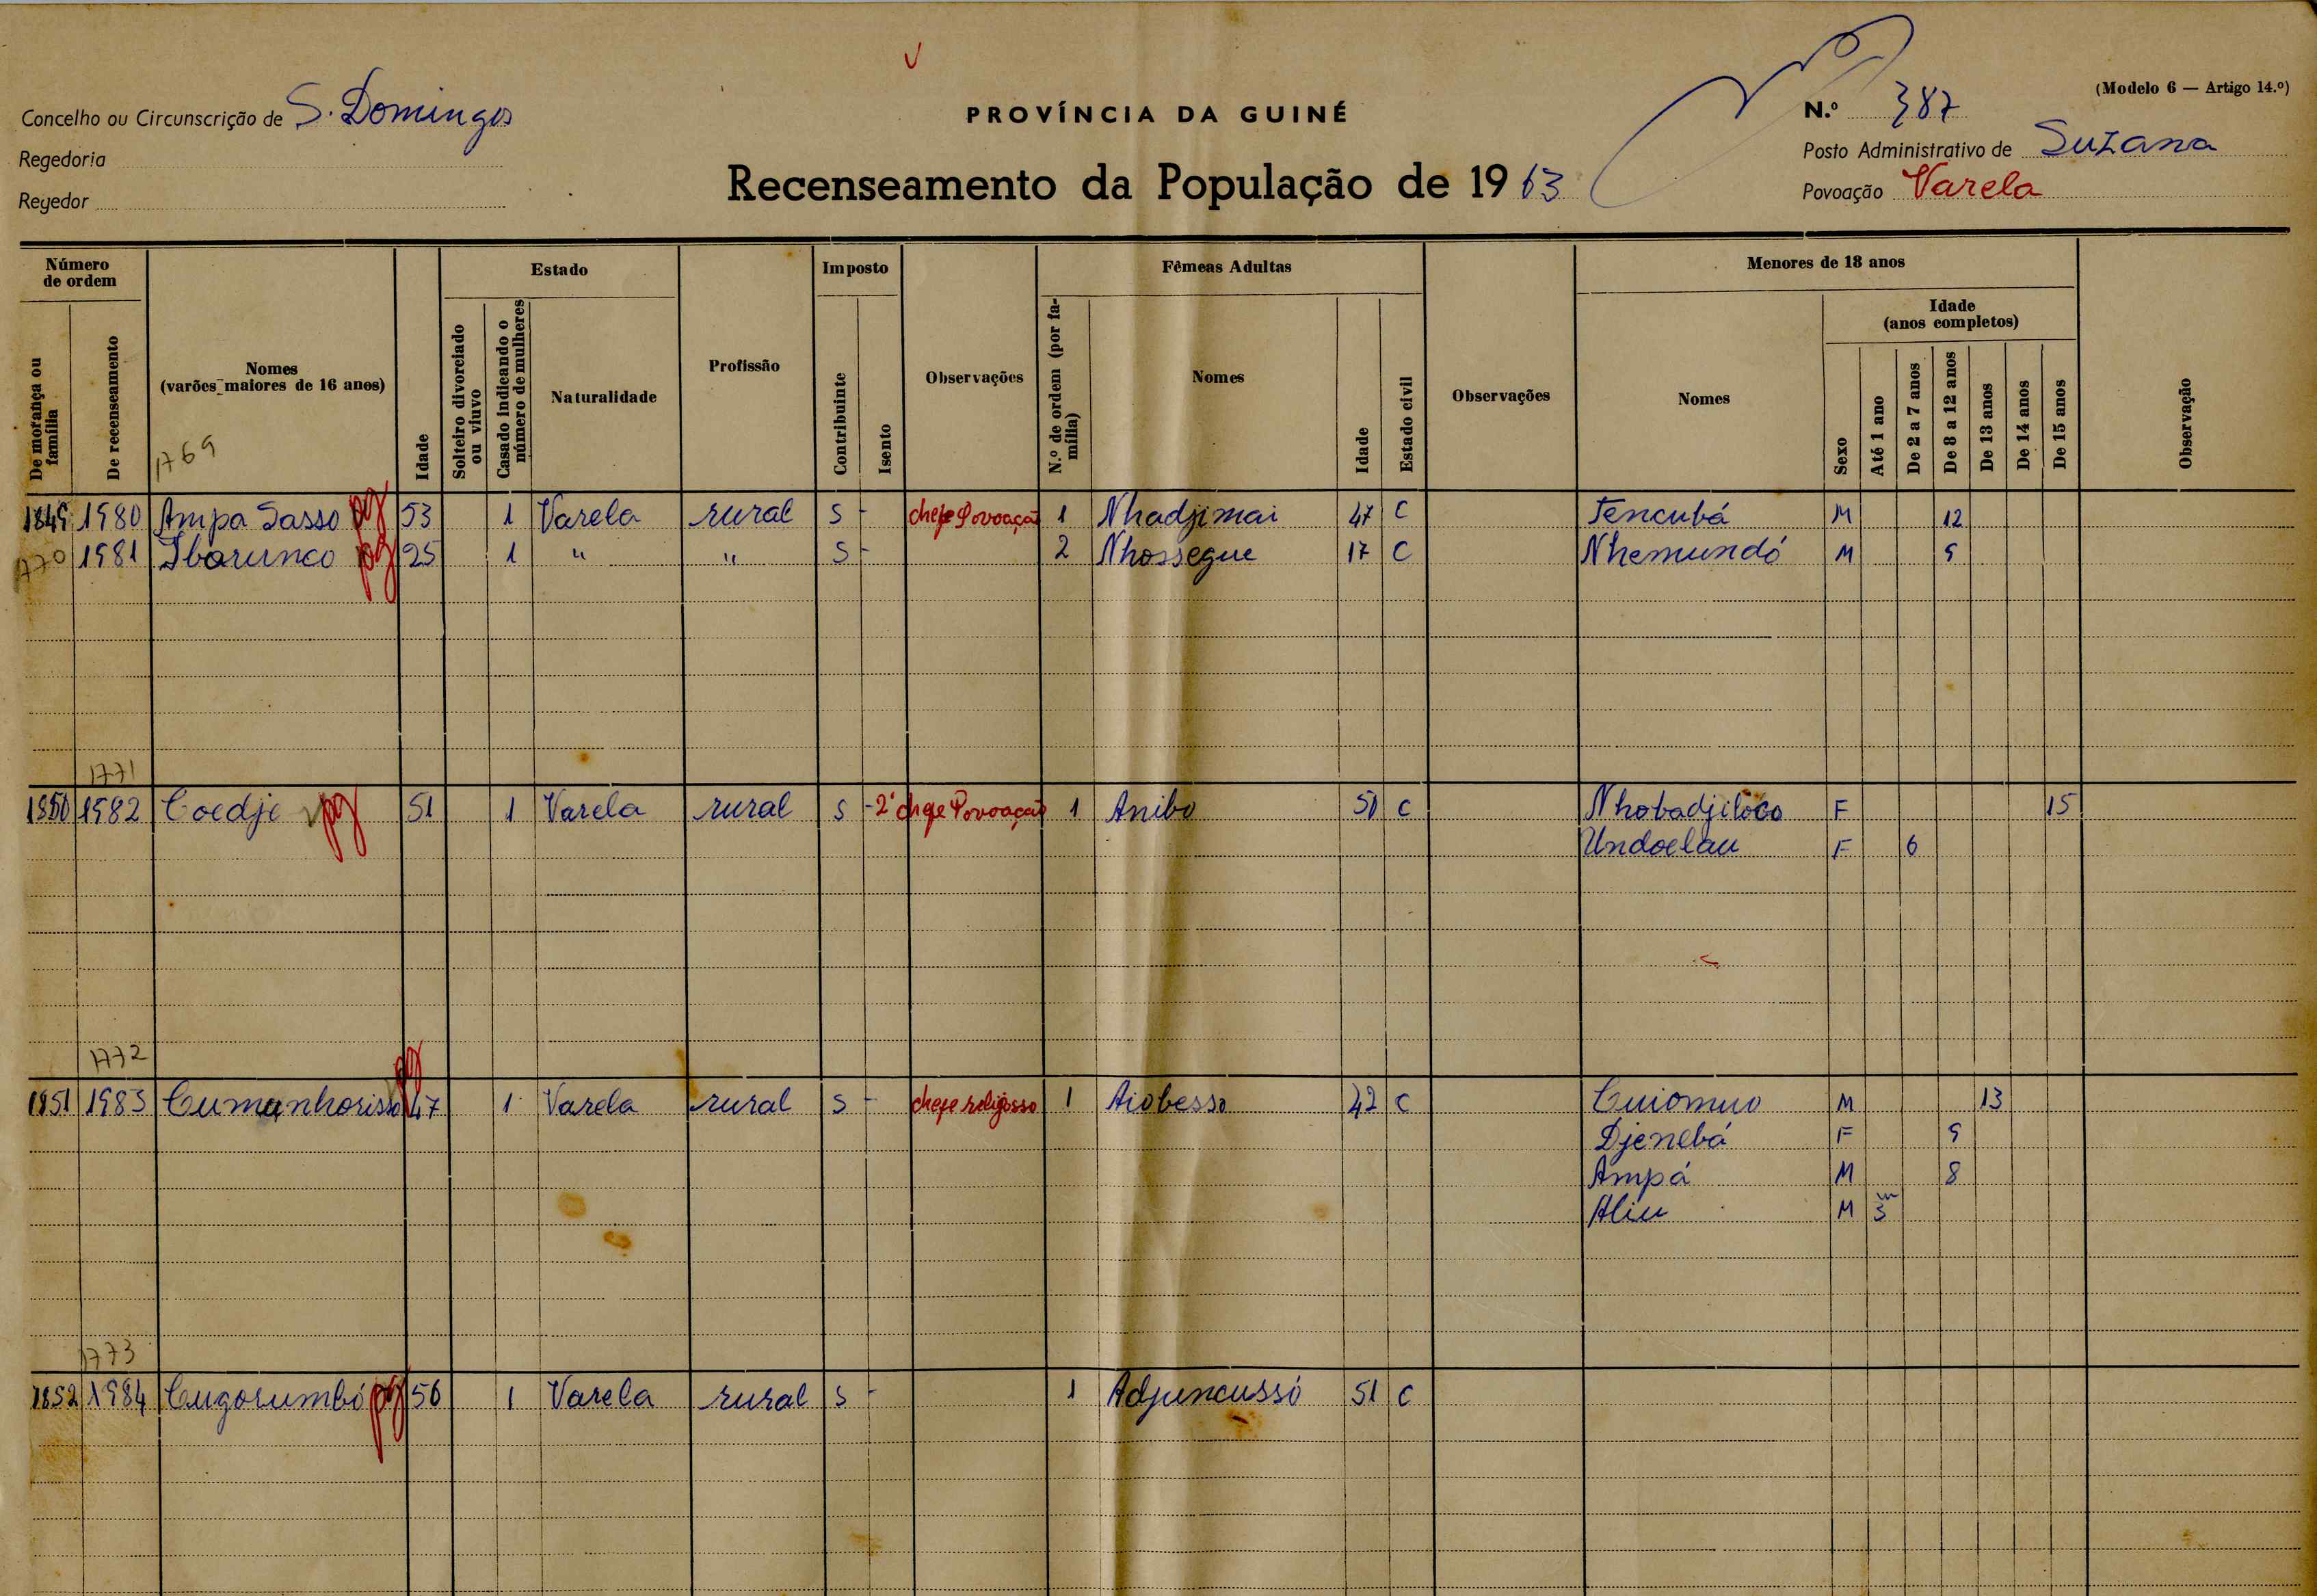 (Modelo 6 — Artigo 14.º)
PROVÍNCIA DA GUINÉ
Concelho ou Circunscrição de S. Domingos
N.º 387
Regedoria
Posto Administrativo de Suzana
Regedor
Recenseamento da População de 1963
Povoação Varela
Número de ordem
Estado
Imposto
Fêmeas Adultas
Menores de 18 anos
De morança ou família
De recenseamento
Nomes (varões maiores de 16 anos)
Idade
Solteiro divorciado ou viuvo
Casado indicando o número de mulheres
Naturalidade
Profissão
Contribuinte
Isento
Observações
N.º de ordem (por família)
Nomes
Idade
Estado civil
Observações
Nomes
Sexo
Idade (anos completos)
Até 1 ano
De 2 a 7 anos
De 8 a 12 anos
De 13 anos
De 14 anos
De 15 anos
Observação
1769
1849 1980 Ampa Sasso pg 53 1 Varela rural S - chefe Povoação 1 Nhadjimai 47 C Tencubá M 12
1770 1981 Ibarunco pg 25 1 " " S - 2 Nhossegue 17 C Nhemundó M 9
1771
1850 1982 Coedje pg 51 1 Varela rural S - 2º chefe Povoação 1 Anibo 50 C Nhobadjiloco F 15
Undoelau F 6
1772
1851 1983 Cumanhorisso pg 47 1 Varela rural S - chefe religioso 1 Aiobesso 42 C Cuiomuo M 13
Djenebá F 9
Ampá M 8
Aliu M 3 m
1773
1852 1984 Cugorumbó pg 56 1 Varela rural S - 1 Adjuncussó 51 C